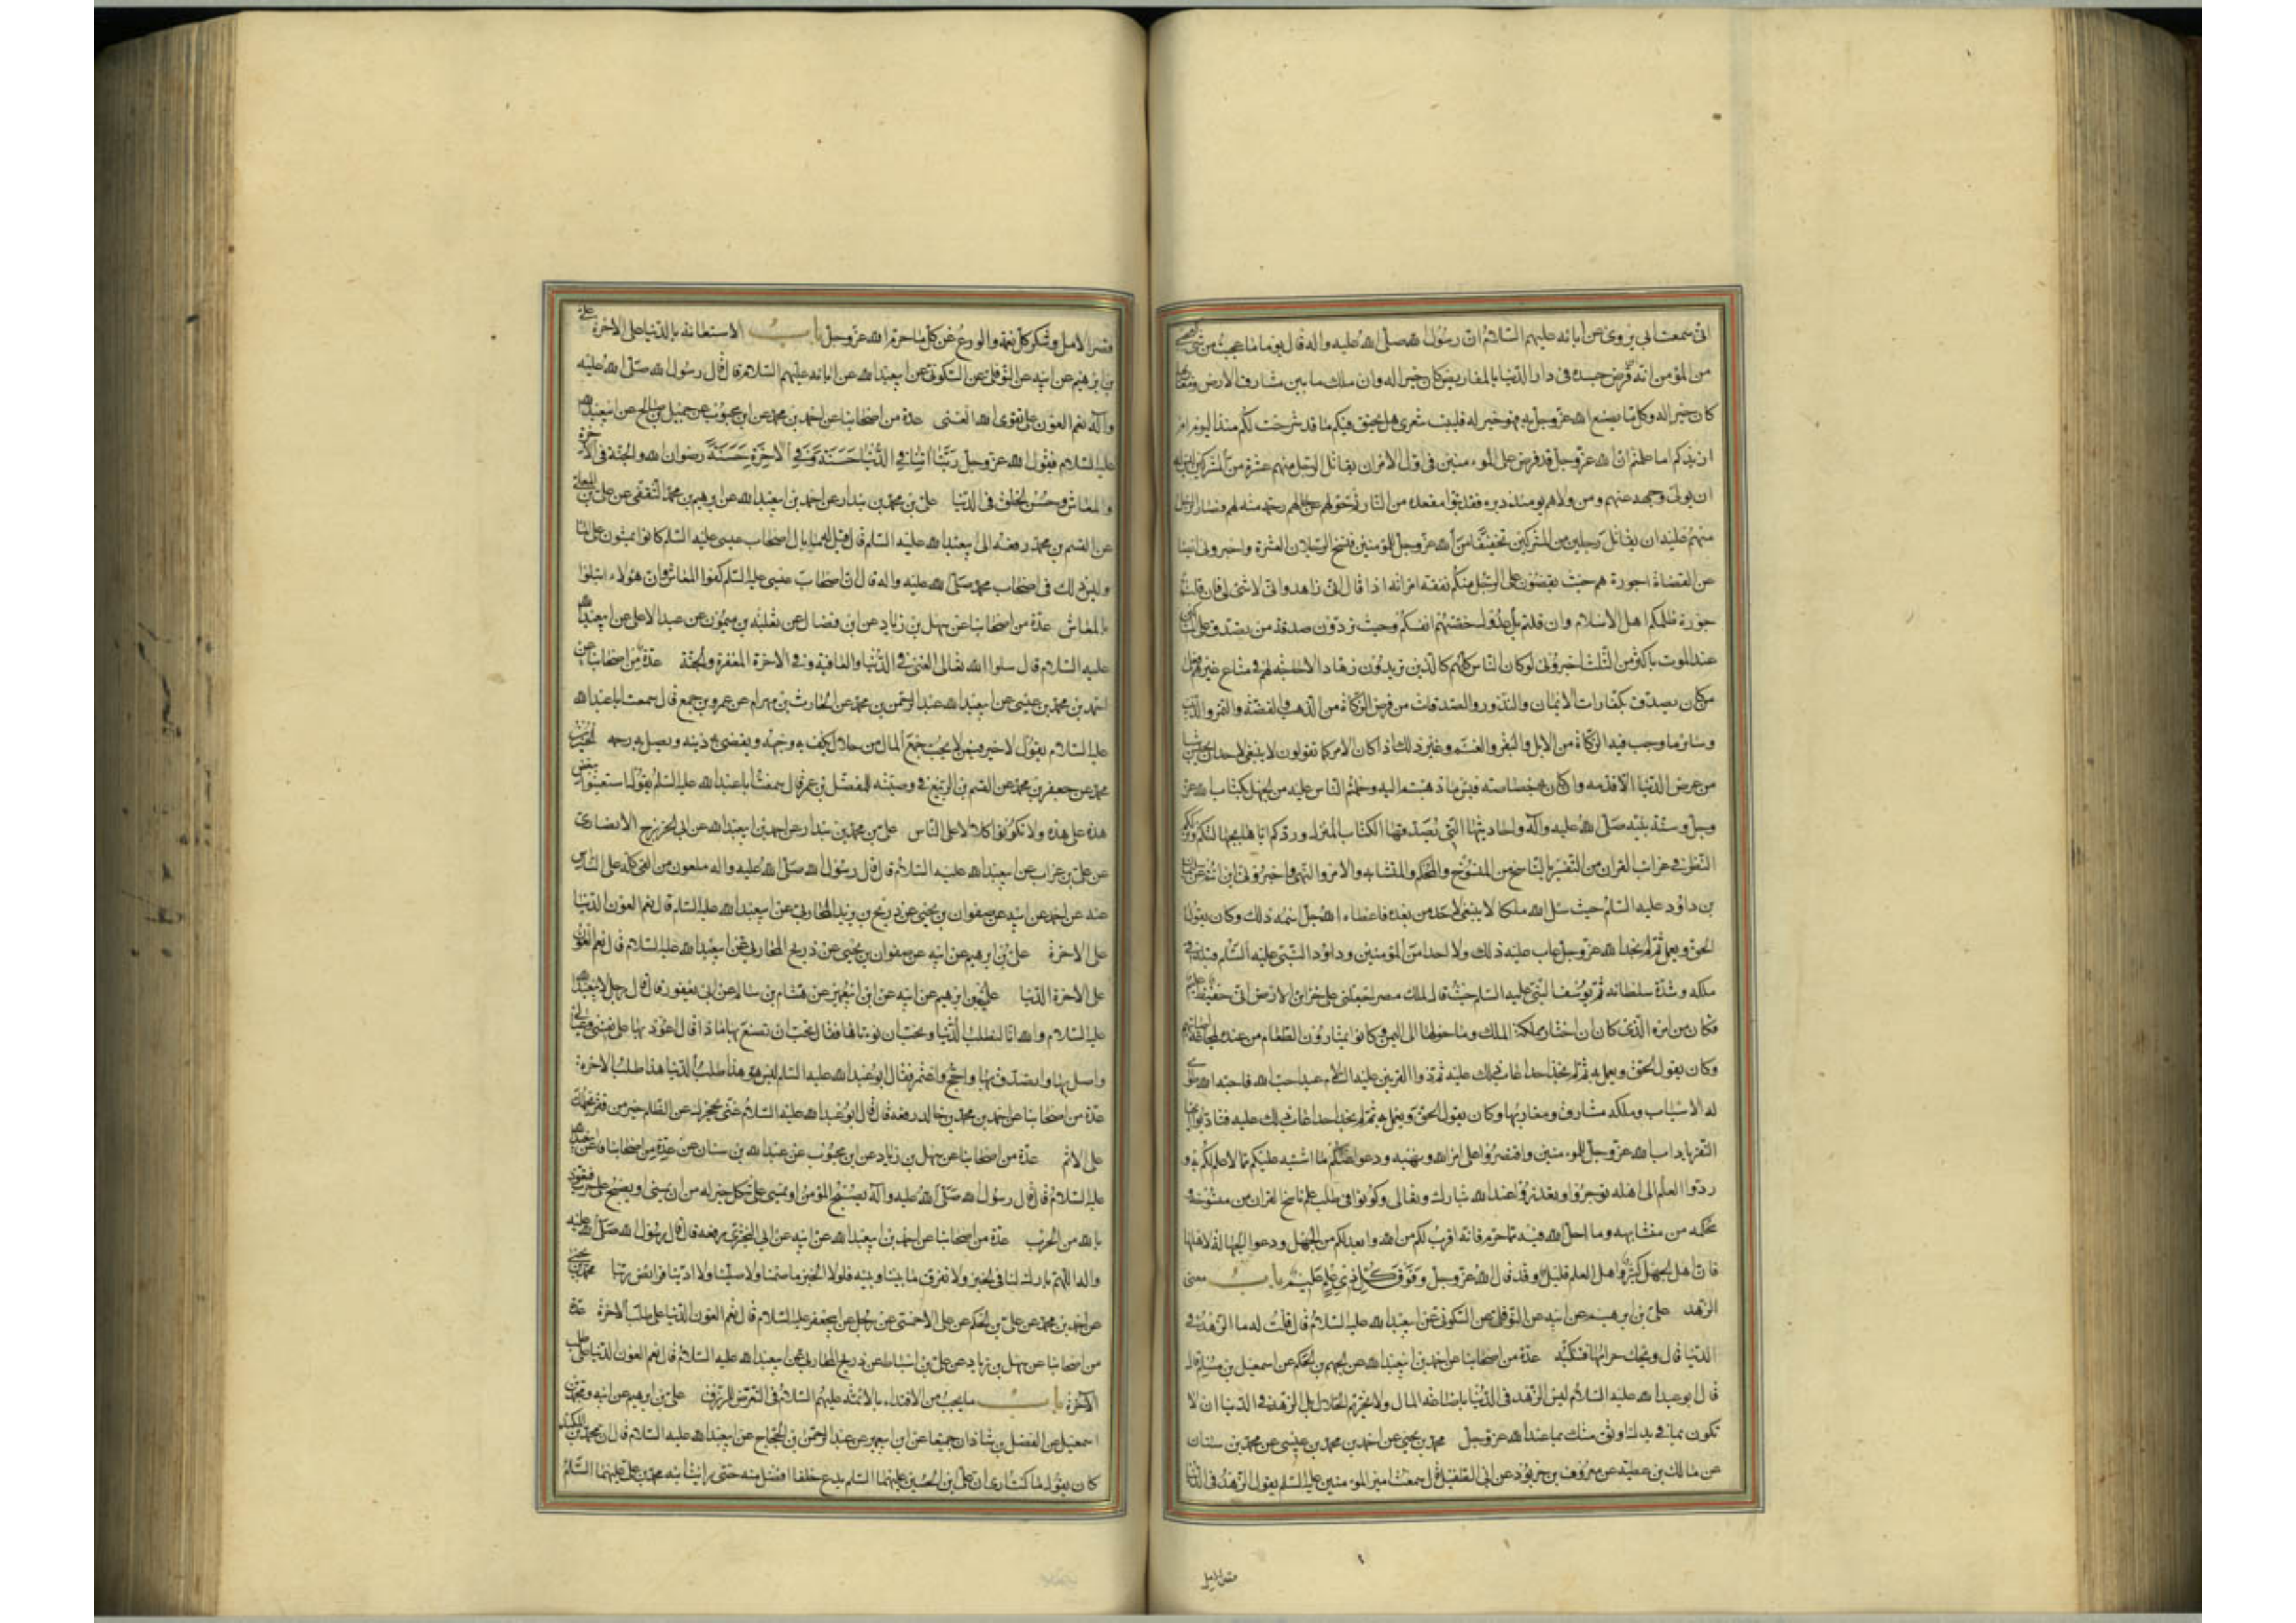 انى سمعت ابى يروى عن آبائه عليهم السلام ان رسول الله صلى الله عليه واله قال يوما ما عجبت من شئ كعجبى
من المؤمن انه قرض جسده فى دار الدنيا بالمقاريض كان خيرا له وان ملك ما بين مشارق الارض ومغاربها
كان خيرا له وكل ما يصنع الله عز وجل به فهو خير له فليت شعرى هل يحيق فيكم ما قد شرحت لكم منذ اليوم ام
ازيدكم اما علمتم ان الله عز وجل قد فرض على المؤمنين فى اول الامر ان يقاتل الرجل منهم عشرة من المشركين ليس له
ان يولى وجهه عنهم ومن ولاهم يومئذ دبره فقد تبوا مقعده من النار ثم حولهم عن حالهم رحمة منه لهم فصار الرجل
منهم عليه ان يقاتل رجلين من المشركين تخفيفا من الله عز وجل للمؤمنين فنسخ الرجلان العشرة واخبرونى ايضا
عن القضاة اجورة هم حيث يقضون على الرجل منكم نفقة امراته اذا قال انى زاهد وانى لا شئ لى فان قلتم
جورة ظلمكم اهل الاسلام وان قلتم بل عدول خصمتم انفسكم وحيث تردون صدقة من تصدق على المساكين
عند الموت باكثر من الثلث اخبرونى لو كان الناس كلهم كالذين تريدون زهادا لا حاجة لهم فى متاع غيرهم فعلى
من كان تصدق بكفارات الايمان والنذور والصدقات من فرض الزكاة من الذهب والفضة والتمر والزبيب
وسائر ما وجب فيه الزكاة من الابل والبقر والغنم وغير ذلك اذا كان الامر كما تقولون لا ينبغى لاحد ان يحبس شيئا
من عرض الدنيا الا قدمه وان كان به خصاصة فبئس ما ذهبتم اليه وحملتم الناس عليه من الجهل بكتاب الله عز
وجل وسنة نبيه صلى الله عليه وآله واحاديثها التى يصدقها الكتاب المنزل وردكم اياها بجهالتكم وترككم
النظر فى غرائب القران من التفسير بالناسخ من المنسوخ والمحكم والمتشابه والامر والنهى واخبرونى اين انتم عن سليمان
بن داود عليه السلم حيث سئل الله ملكا لا ينبغى لاحد من بعده فاعطاه الله جل اسمه ذلك وكان يقول
الحق ويعمل به ثم لم نجد الله عز وجل عاب عليه ذلك ولا احدا من المؤمنين وداود النبى عليه السلم قبله فى
ملكه وشدة سلطانه ثم يوسف النبى عليه السلم حيث قال لملك مصر اجعلنى على خزائن الارض انى حفيظ عليم
فكان من امره الذى كان ان اختار مملكة الملك وما حولها الى اليمن وكانوا يمتارون الطعام من عنده لمجاعة اصابتهم
وكان يقول الحق ويعمل به ثم لم نجد احدا عاب ذلك عليه ثم ذو القرنين عليه السلام عبد احب الله فاحبه الله طوى
له الاسباب وملكه مشارق ومغاربها وكان يقول الحق ويعمل به ثم لم نجد احدا عاب ذلك عليه فتادبوا ايها
النفر باداب الله عز وجل للمؤمنين واقتصروا على امر الله ونهيه ودعوا عنكم ما اشتبه عليكم مما لا علم لكم به و
ردوا العلم الى اهله توجروا وتعذروا عند الله تبارك وتعالى وكونوا فى طلب علم ناسخ القران من منسوخه و
محكمه من متشابهه وما احل الله فيه مما حرم فانه اقرب لكم من الله وابعد لكم من الجهل ودعوا الجهالة لاهلها
فان اهل الجهل كثير واهل العلم قليل وقد قال الله عز وجل وفوق كل ذى علم عليم باب معنى
الزهد على بن ابرهيم عن ابيه عن النوفلى عن السكونى عن ابى عبد الله عليه السلام قال قلت له ما الزهد فى
الدنيا قال ويحك حرامها فتنكبه عدة من اصحابنا عن احمد بن ابى عبد الله عن الجهم بن الحكم عن اسمعيل بن مسلم قال
قال ابو عبد الله عليه السلام ليس الزهد فى الدنيا باضاعة المال ولا تحريم الحلال بل الزهد فى الدنيا ان لا
تكون بما فى يدك اوثق منك بما عند الله عز وجل محمد بن يحيى عن احمد بن محمد بن عيسى عن محمد بن سنان
عن مالك بن عطية عن معروف بن خربوذ عن ابى الطفيل قال سمعت امير المؤمنين عليه السلم يقول الزهد فى الدنيا
قصر الامل
قصر الامل وشكر كل نعمة والورع عن كل ما حرم الله عز وجل باب الاستعانة بالدنيا على الاخرة على
بن ابرهيم عن ابيه عن النوفلى عن السكونى عن ابى عبد الله عن ابائه عليهم السلام قال قال رسول الله صلى الله عليه
وآله نعم العون على تقوى الله الغنى عدة من اصحابنا عن احمد بن محمد عن ابن محبوب عن جميل بن صالح عن ابى عبد الله
عليه السلام فى قول الله عز وجل ربنا اتنا فى الدنيا حسنة وفى الاخرة حسنة رضوان الله والجنة فى الاخرة
والمعاش وحسن الخلق فى الدنيا على بن محمد بن بندار عن احمد بن ابى عبد الله عن ابرهيم بن محمد الثقفى عن على بن المعلى
عن القسم بن محمد رفعه الى ابى عبد الله عليه السلم قال قيل له ما بال اصحاب عيسى عليه السلم كانوا يمشون على الماء
وليس ذلك فى اصحاب محمد صلى الله عليه واله قال ان اصحاب عيسى عليه السلم كفوا المعاش وان هؤلاء ابتلوا
بالمعاش عدة من اصحابنا عن سهل بن زياد عن ابن فضال عن ثعلبة بن ميمون عن عبد الاعلى عن ابى عبد الله
عليه السلام قال سلوا الله تعالى الغنى فى الدنيا والعافية وفى الاخرة المغفرة والجنة عدة من اصحابنا عن
احمد بن محمد بن عيسى عن ابى عبد الله عبد الرحمن بن محمد عن الحارث بن بهرام عن عمرو بن جميع قال سمعت ابا عبد الله
عليه السلام يقول لا خير فيمن لا يحب جمع المال من حلال يكف به وجهه ويقضى به دينه ويصل به رحمه الحسين بن
محمد عن جعفر بن محمد عن القسم بن الربيع فى وصيته للمفضل بن عمر قال سمعت ابا عبد الله عليه السلم يقول استعينوا ببعض
هذه على هذه ولا تكونوا كلا على الناس على بن محمد بن بندار عن احمد بن ابى عبد الله عن ابى الخزرج الانصارى
عن على بن غراب عن ابى عبد الله عليه السلام قال قال رسول الله صلى الله عليه واله ملعون من القى كله على الناس
عنه عن احمد عن ابيه عن صفوان بن يحيى عن ذريح بن يزيد المحاربى عن ابى عبد الله عليه السلم قال نعم العون الدنيا
على الاخرة على بن ابرهيم عن ابيه عن صفوان بن يحيى عن ذريح المحاربى عن ابى عبد الله عليه السلام قال نعم العون
على الاخرة الدنيا على بن ابرهيم عن ابيه عن ابن ابى عمير عن هشام بن سالم عن ابن ابى يعفور قال قال رجل لابى عبد الله
عليه السلام والله انا لنطلب الدنيا ونحب ان نوتاها فقال تحب ان تصنع بها ماذا قال اعود بها على نفسى وعيالى
واصل بها واتصدق بها واحج واعتمر فقال ابو عبد الله عليه السلم ليس هو هذا طلب الدنيا هذا طلب الاخرة
عدة من اصحابنا عن احمد بن محمد بن خالد رفعه قال قال ابو عبد الله عليه السلام غنى يحجزك عن الظلم خير من فقر يحملك
على الاثم عدة من اصحابنا عن سهل بن زياد عن ابن محبوب عن عبد الله بن سنان عن عدة من اصحابنا عن ابى عبد الله
عليه السلام قال قال رسول الله صلى الله عليه وآله يصبح المؤمن او يمسى على ثكل خير له من ان يمسى او يصبح على حرب فنعوذ
بالله من الحرب عدة من اصحابنا عن احمد بن ابى عبد الله عن ابيه عن ابى البخترى رفعه قال قال رسول الله صلى الله عليه
واله اللهم بارك لنا فى الخبز ولا تفرق بيننا وبينه فلولا الخبز ما صمنا ولا صلينا ولا ادينا فرائض ربنا محمد بن يحيى
عن احمد بن محمد عن على بن الحكم عن على الاحمسى عن رجل عن ابى جعفر عليه السلام قال نعم العون الدنيا على طلب الاخرة عدة
من اصحابنا عن سهل بن زياد عن على بن اسباط عن ذريح المحاربى عن ابى عبد الله عليه السلام قال نعم العون الدنيا على طلب
الاخرة باب ما يجب من الاقتداء بالائمة عليهم السلام فى التعرض للرزق على بن ابرهيم عن ابيه ومحمد بن
اسمعيل عن الفضل بن شاذان جميعا عن ابن ابى عمير عن عبد الرحمن بن الحجاج عن ابى عبد الله عليه السلام قال ان محمد بن المنكدر
كان يقول ما كنت ارى ان على بن الحسين عليهما السلم يدع خلفا افضل منه حتى رايت ابنه محمد بن على عليهما السلام